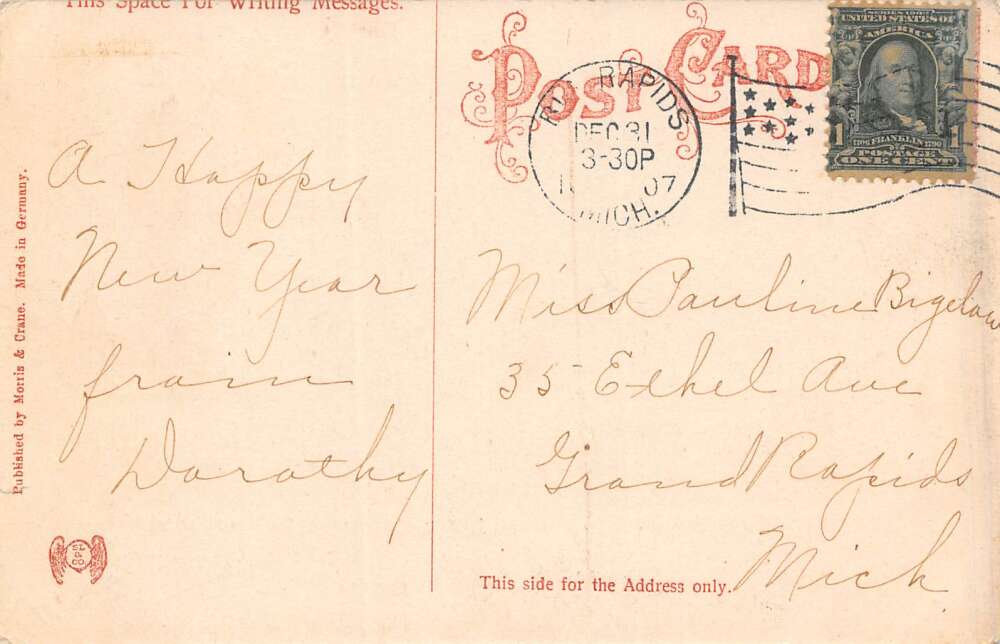 This Space For Writing Messages.
POST CARD
A Happy
New Year
from
Dorothy
RAPIDS
DEC 31
3-30P
07
MICH.
SERIES 1902
UNITED STATES OF
AMERICA
1 1
1706 FRANKLIN 1790
POSTAGE
ONE CENT
Miss Pauline Bigelow
35 Ethel Ave
Grand Rapids
Mich
This side for the Address only.
Published by Morris & Crane. Made in Germany.